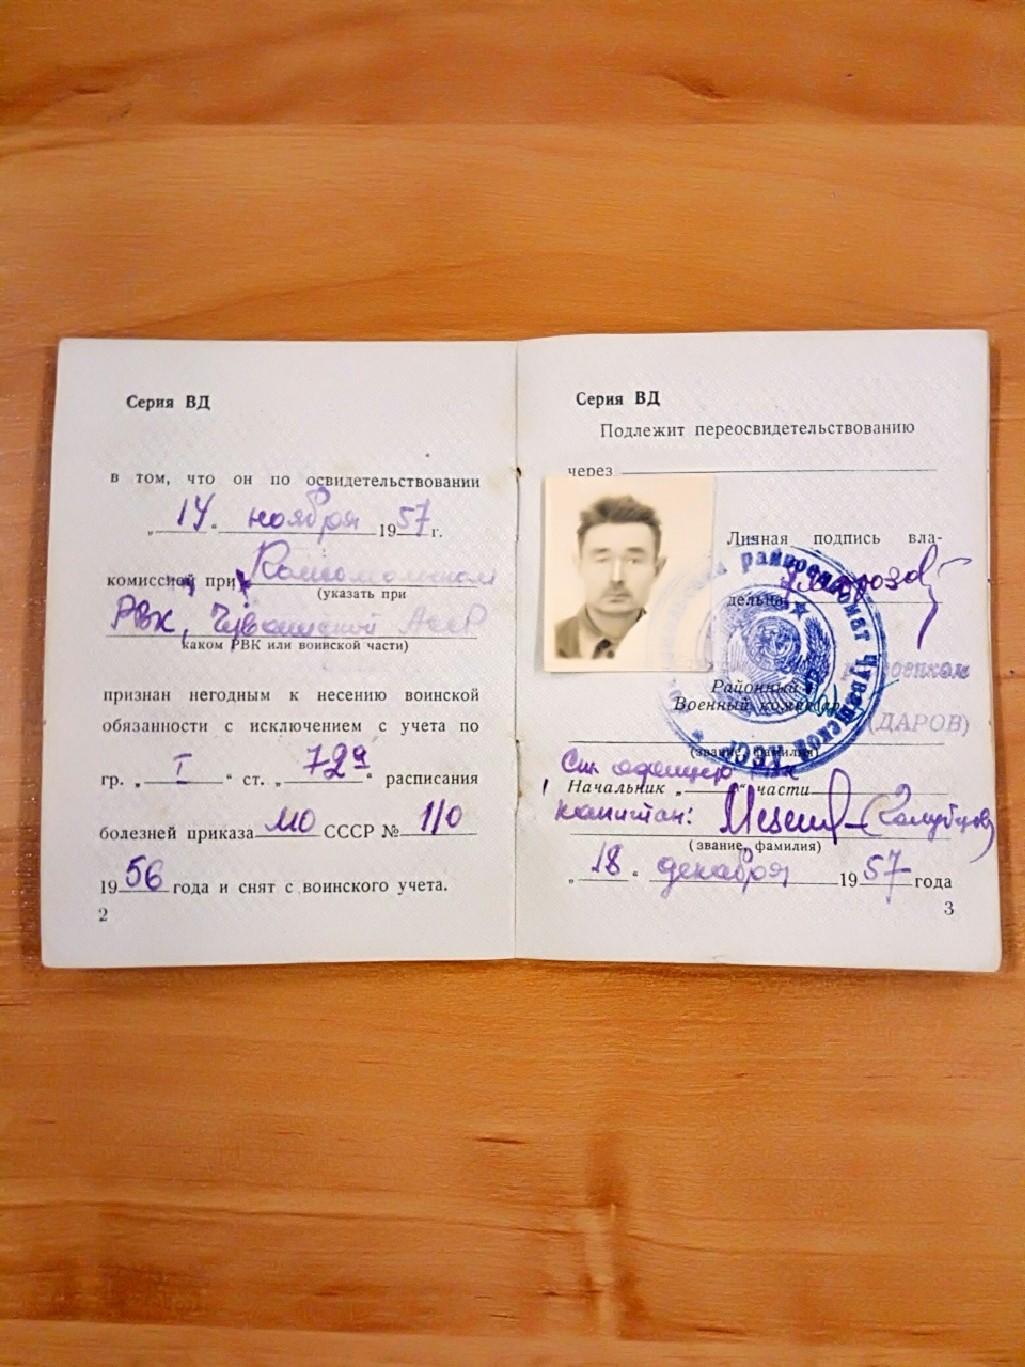 Серия ВД
в том, что он по освидетельствовании
„14“ ноября 1957 г.
комиссией при Комсомольском
(указать при
РВК, Чувашской АССР
каком РВК или воинской части)
признан негодным к несению воинской
обязанности с исключением с учета по
гр. „I“ ст. „72ч“ расписания
болезней приказа МО СССР № 110
1956 года и снят с воинского учета.
2
Серия ВД
Подлежит переосвидетельствованию
через
Личная подпись вла-
дельца
райвоенкомат Чувашской АССР
Районный
Военный комиссар
райвоенком
(ДАРОВ)
(звание, фамилия)
Начальник „ “ части
капитан:
(звание, фамилия)
„18“ декабря 1957 года
3